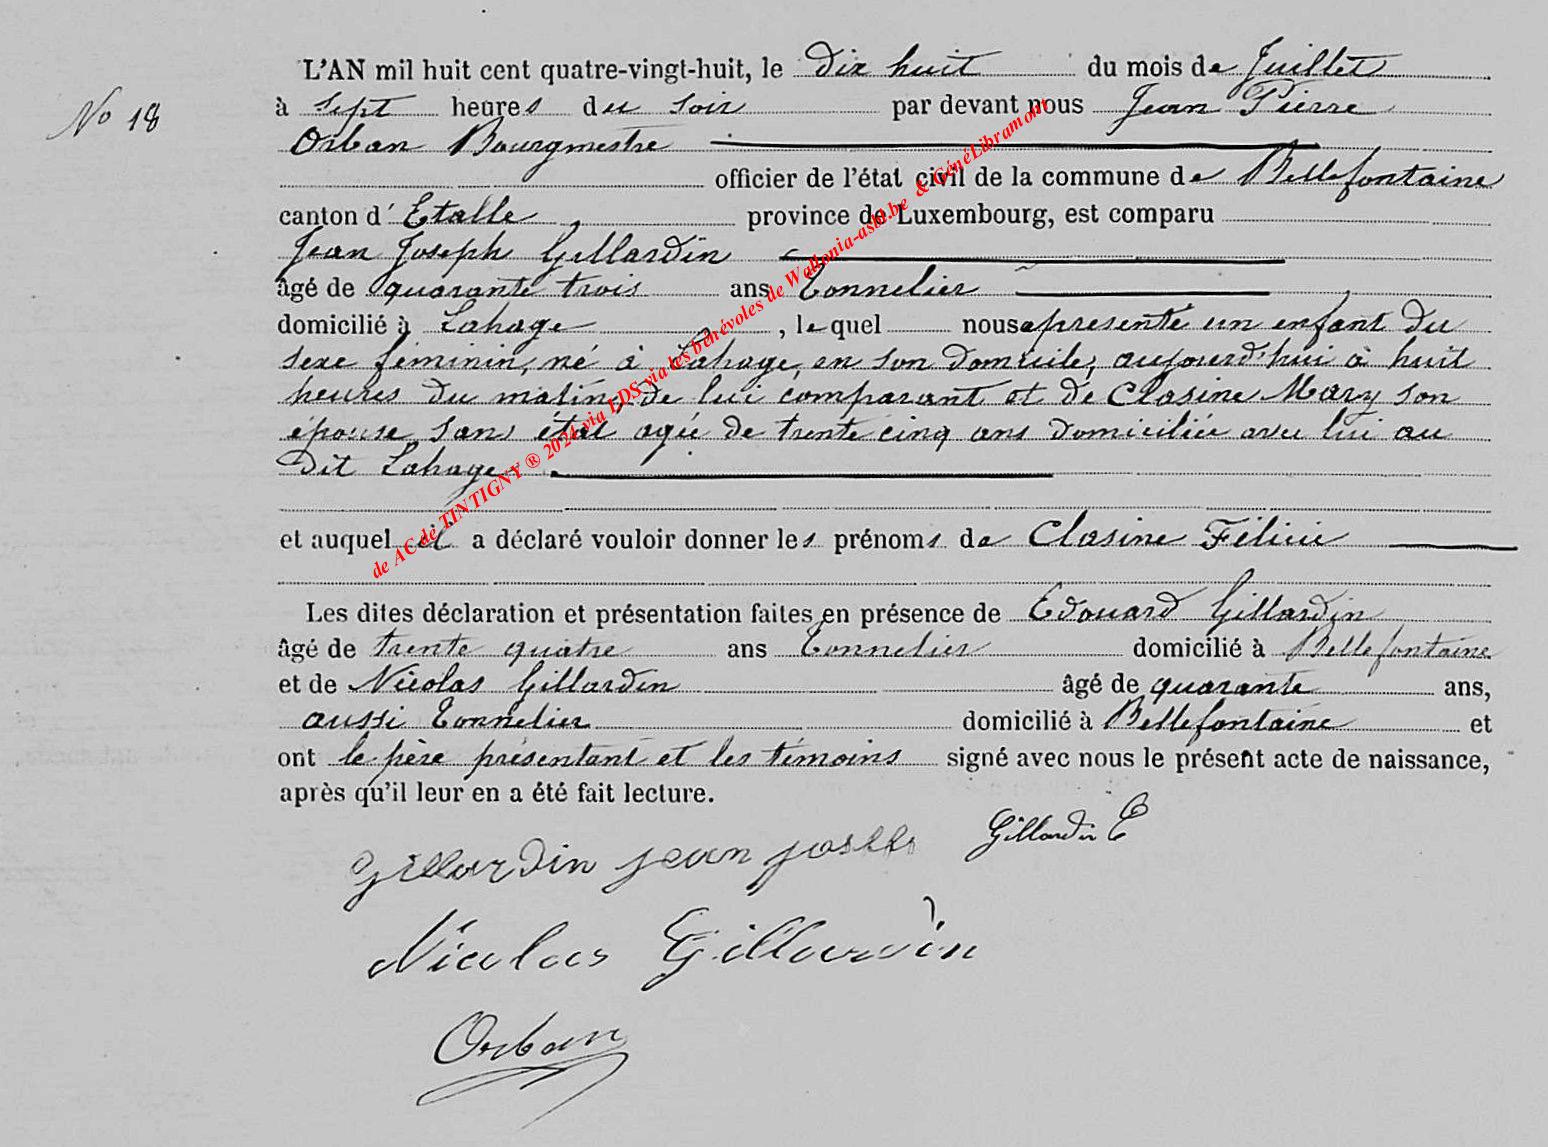 No 18
L'AN mil huit cent quatre-vingt-huit, le dix huit du mois de Juillet
à sept heures du soir par devant nous Jean Pierre
Orban Bourgmestre
officier de l'état civil de la commune de Bellefontaine
canton d' Etalle province de Luxembourg, est comparu
Jean Joseph Gillardin
âgé de quarante trois ans Tonnelier
domicilié à Lahage, lequel nous a présenté un enfant du
sexe féminin, né à Lahage, en son domicile, aujourd'hui à huit
heures du matin, de lui comparant et de Clasine Mary son
épouse, sans état agée de trente cinq ans domiciliée avec lui au
dit Lahage
et auquel il a déclaré vouloir donner les prénoms de Clasine Félicie
Les dites déclaration et présentation faites en présence de Edouard Gillardin
âgé de trente quatre ans Tonnelier domicilié à Bellefontaine
et de Nicolas Gillardin âgé de quarante ans,
aussi Tonnelier domicilié à Bellefontaine et
ont le père présentant et les témoins signé avec nous le présent acte de naissance,
après qu'il leur en a été fait lecture.
Gillardin jean joseph Gillardin E
Nicolas Gillardin
Orban
de AC de TINTIGNY ® 2024 via FDS via les bénévoles de Wallonia-asbl.be & GénéLibramont